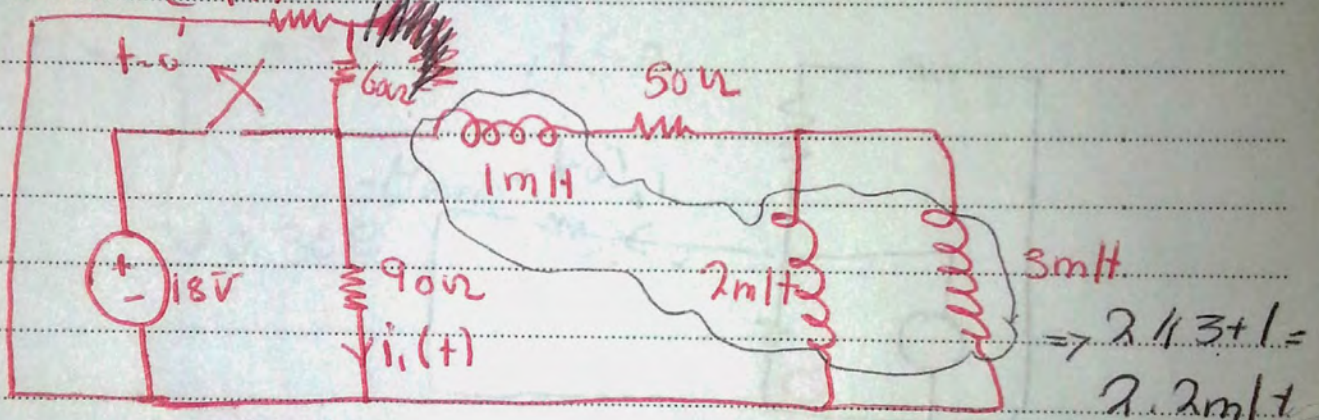 t=0
60Ω
50Ω
1mH
18V
90Ω
i₁(t)
2mH
3mH
=> 2//3+1=
2.2mH